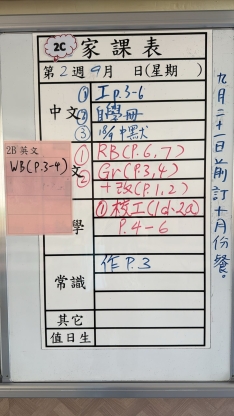 2C 家課表
第2週9月 日(星期 )
中文 ① 工P.3-6
② 自學冊
③ 18/9中默
2B 英文
WB(P.3-4)
文 ① RB(P.6,7)
② Gr(P.3,4)
+改(P.1,2)
學 ① 校工(1d-2a)
P.4-6
常識 作P.3
其它
值日生
九月二十一日前訂十月份餐。